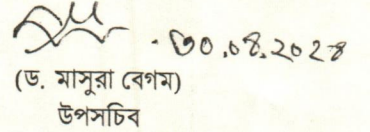 ৩০.০৪.২০২৪
(ড. মাসুরা বেগম)
উপসচিব